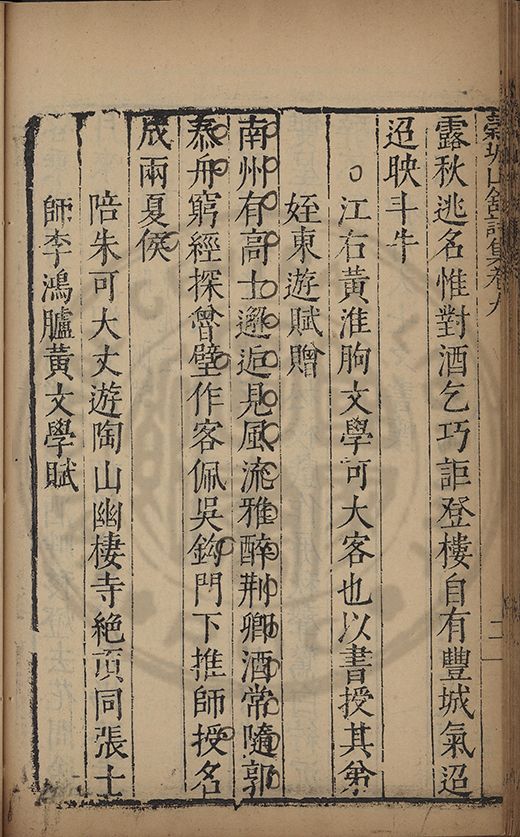 山館詩集卷九
二
露秋逃名惟對酒乞巧詎登樓自有豐城氣迢
迢映斗牛
江右黃淮朐文學可大客也以書授其弟
姪東遊賦贈
南州有高士邂逅見風流雅醉荆卿酒常隨郭
泰舟窮經探魯壁作客佩吳鈎門下推師授名
成兩夏侯
陪朱可大丈遊陶山幽棲寺絶頂同張士
師李鴻臚黃文學賦